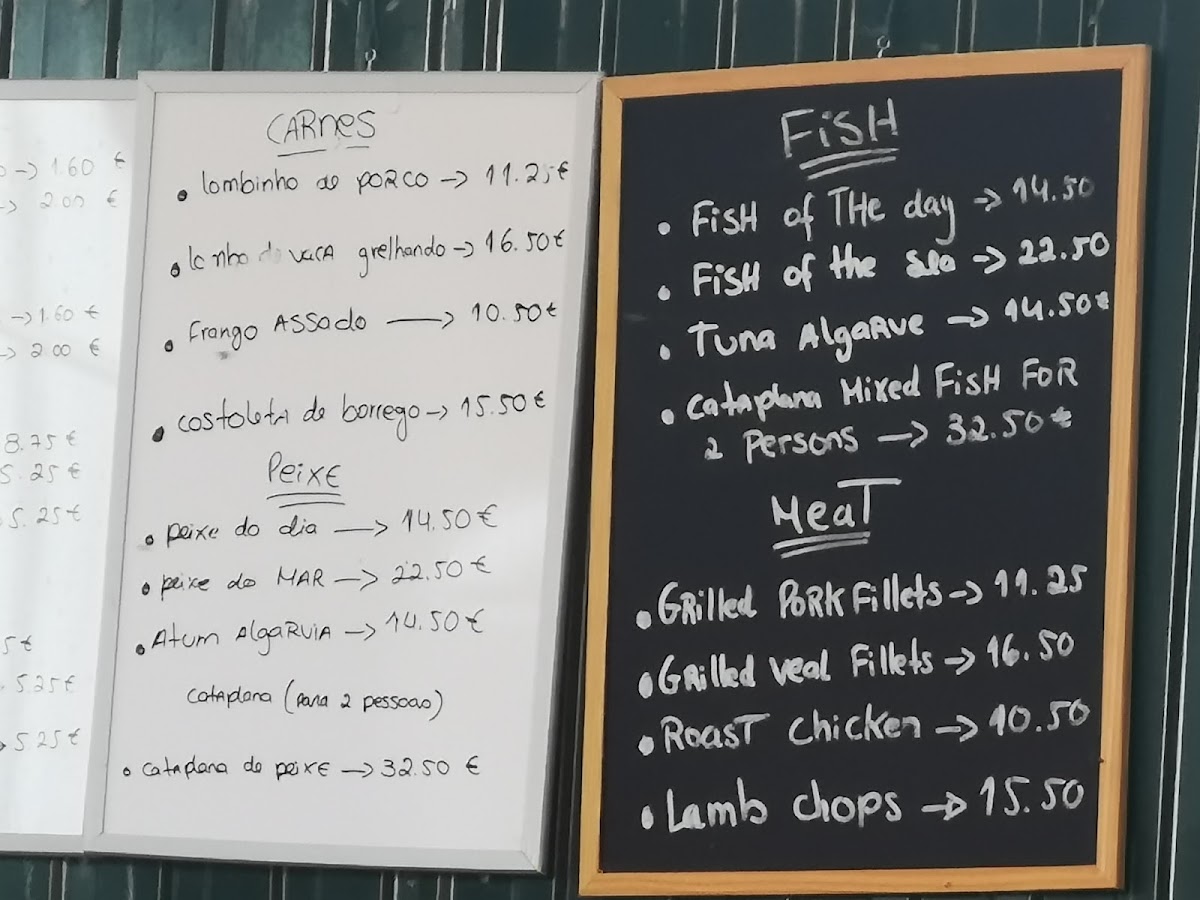 -> 1.60 €
-> 2.00 €
-> 1.60 €
-> 2.00 €
8.75 €
5.25 €
5.25 €
5 €
5.25 €
-> 5.25 €
CARnes
• lombinho de PORCO -> 11.25 €
• vaca grelhando -> 16.50 €
• Frango Assado -> 10.50 €
• costoleta de borrego -> 15.50 €
Peixe
• peixe do dia -> 14.50 €
• peixe do MAR -> 22.50 €
• Atum AlgaRVIA -> 14.50 €
cataplana (para 2 pessoao)
• cataplana de peixe -> 32.50 €
FiSH
• FiSH of THe day -> 14.50
• FiSH of the sea -> 22.50
• Tuna AlgaRve -> 14.50 €
• Cataplana Mixed FisH FOR
2 Persons -> 32.50 €
MeaT
• GRilled PORK Fillets -> 11.25
• GRilled veal Fillets -> 16.50
• RoasT chicken -> 10.50
• Lamb chops -> 15.50